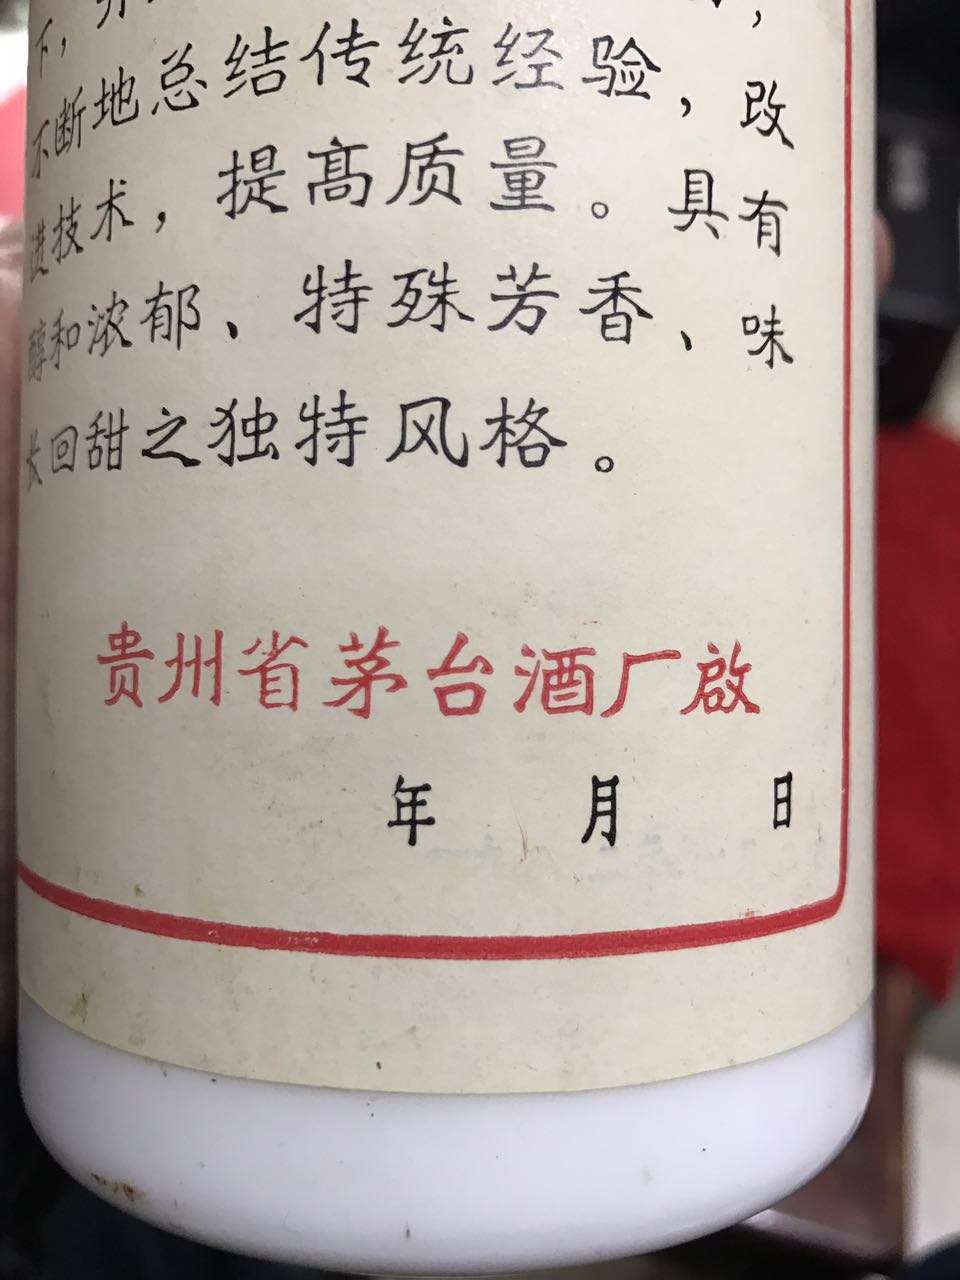 下，
不断地总结传统经验，改
进技术，提高质量。具有
醇和浓郁、特殊芳香、味
长回甜之独特风格。
贵州省茅台酒厂啟
年 月 日